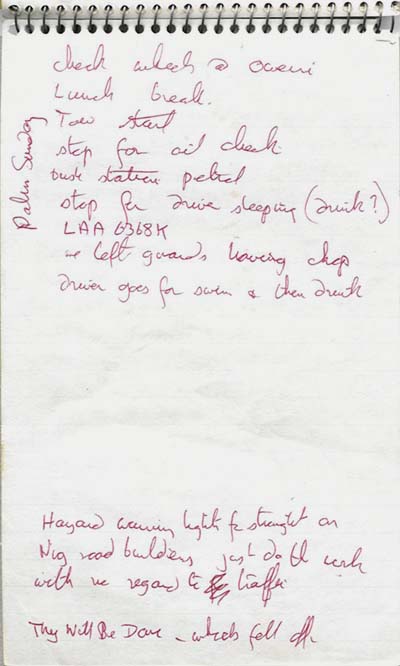 check wheels @ Owerri
Lunch break.
Tow start
stop for oil check
station petrol
stop for driver sleeping (drink?)
LAA 6368K
we left guards having chop
Driver goes for swim & then drink
Palm Sunday
Hazard warning lights for straight on
Nig road builders just do the work
with no regard to traffic
Thy Will Be Done - wheels fell off